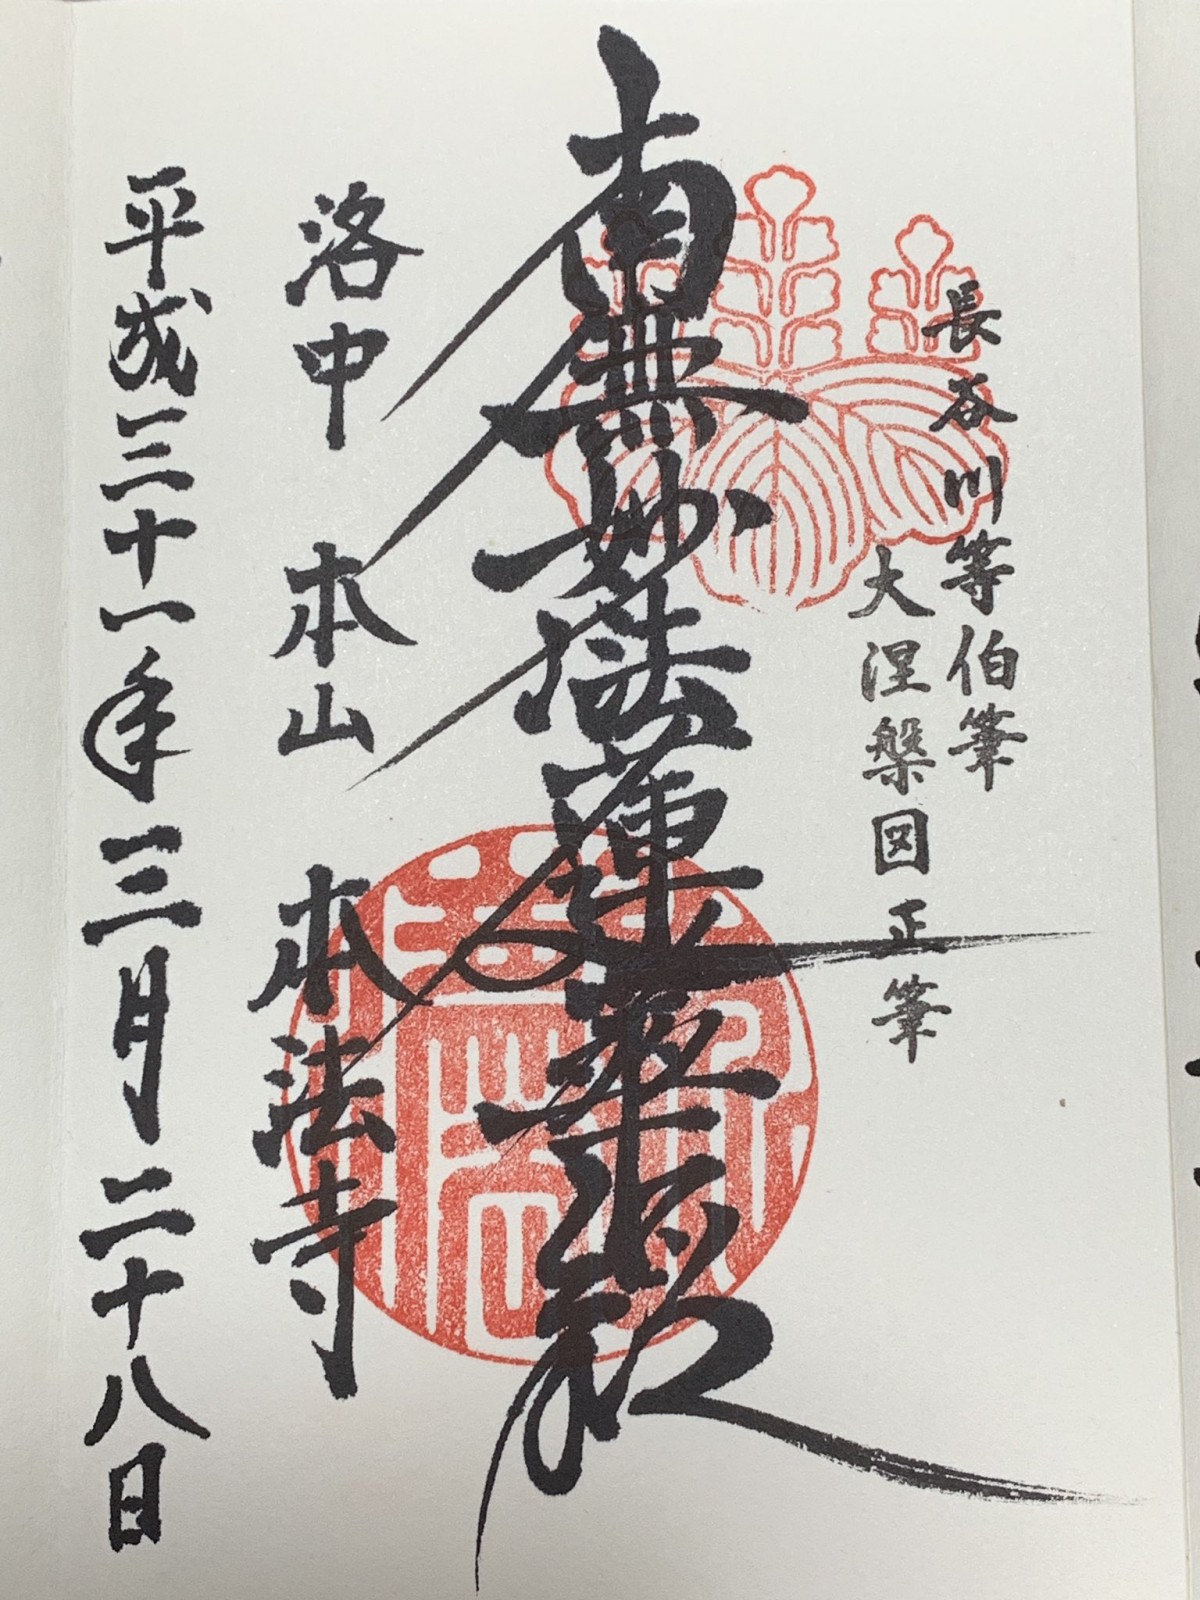 長谷川等伯筆
大涅槃図正筆
南無妙法蓮華経
洛中 本山 本法寺
平成三十一年三月二十八日